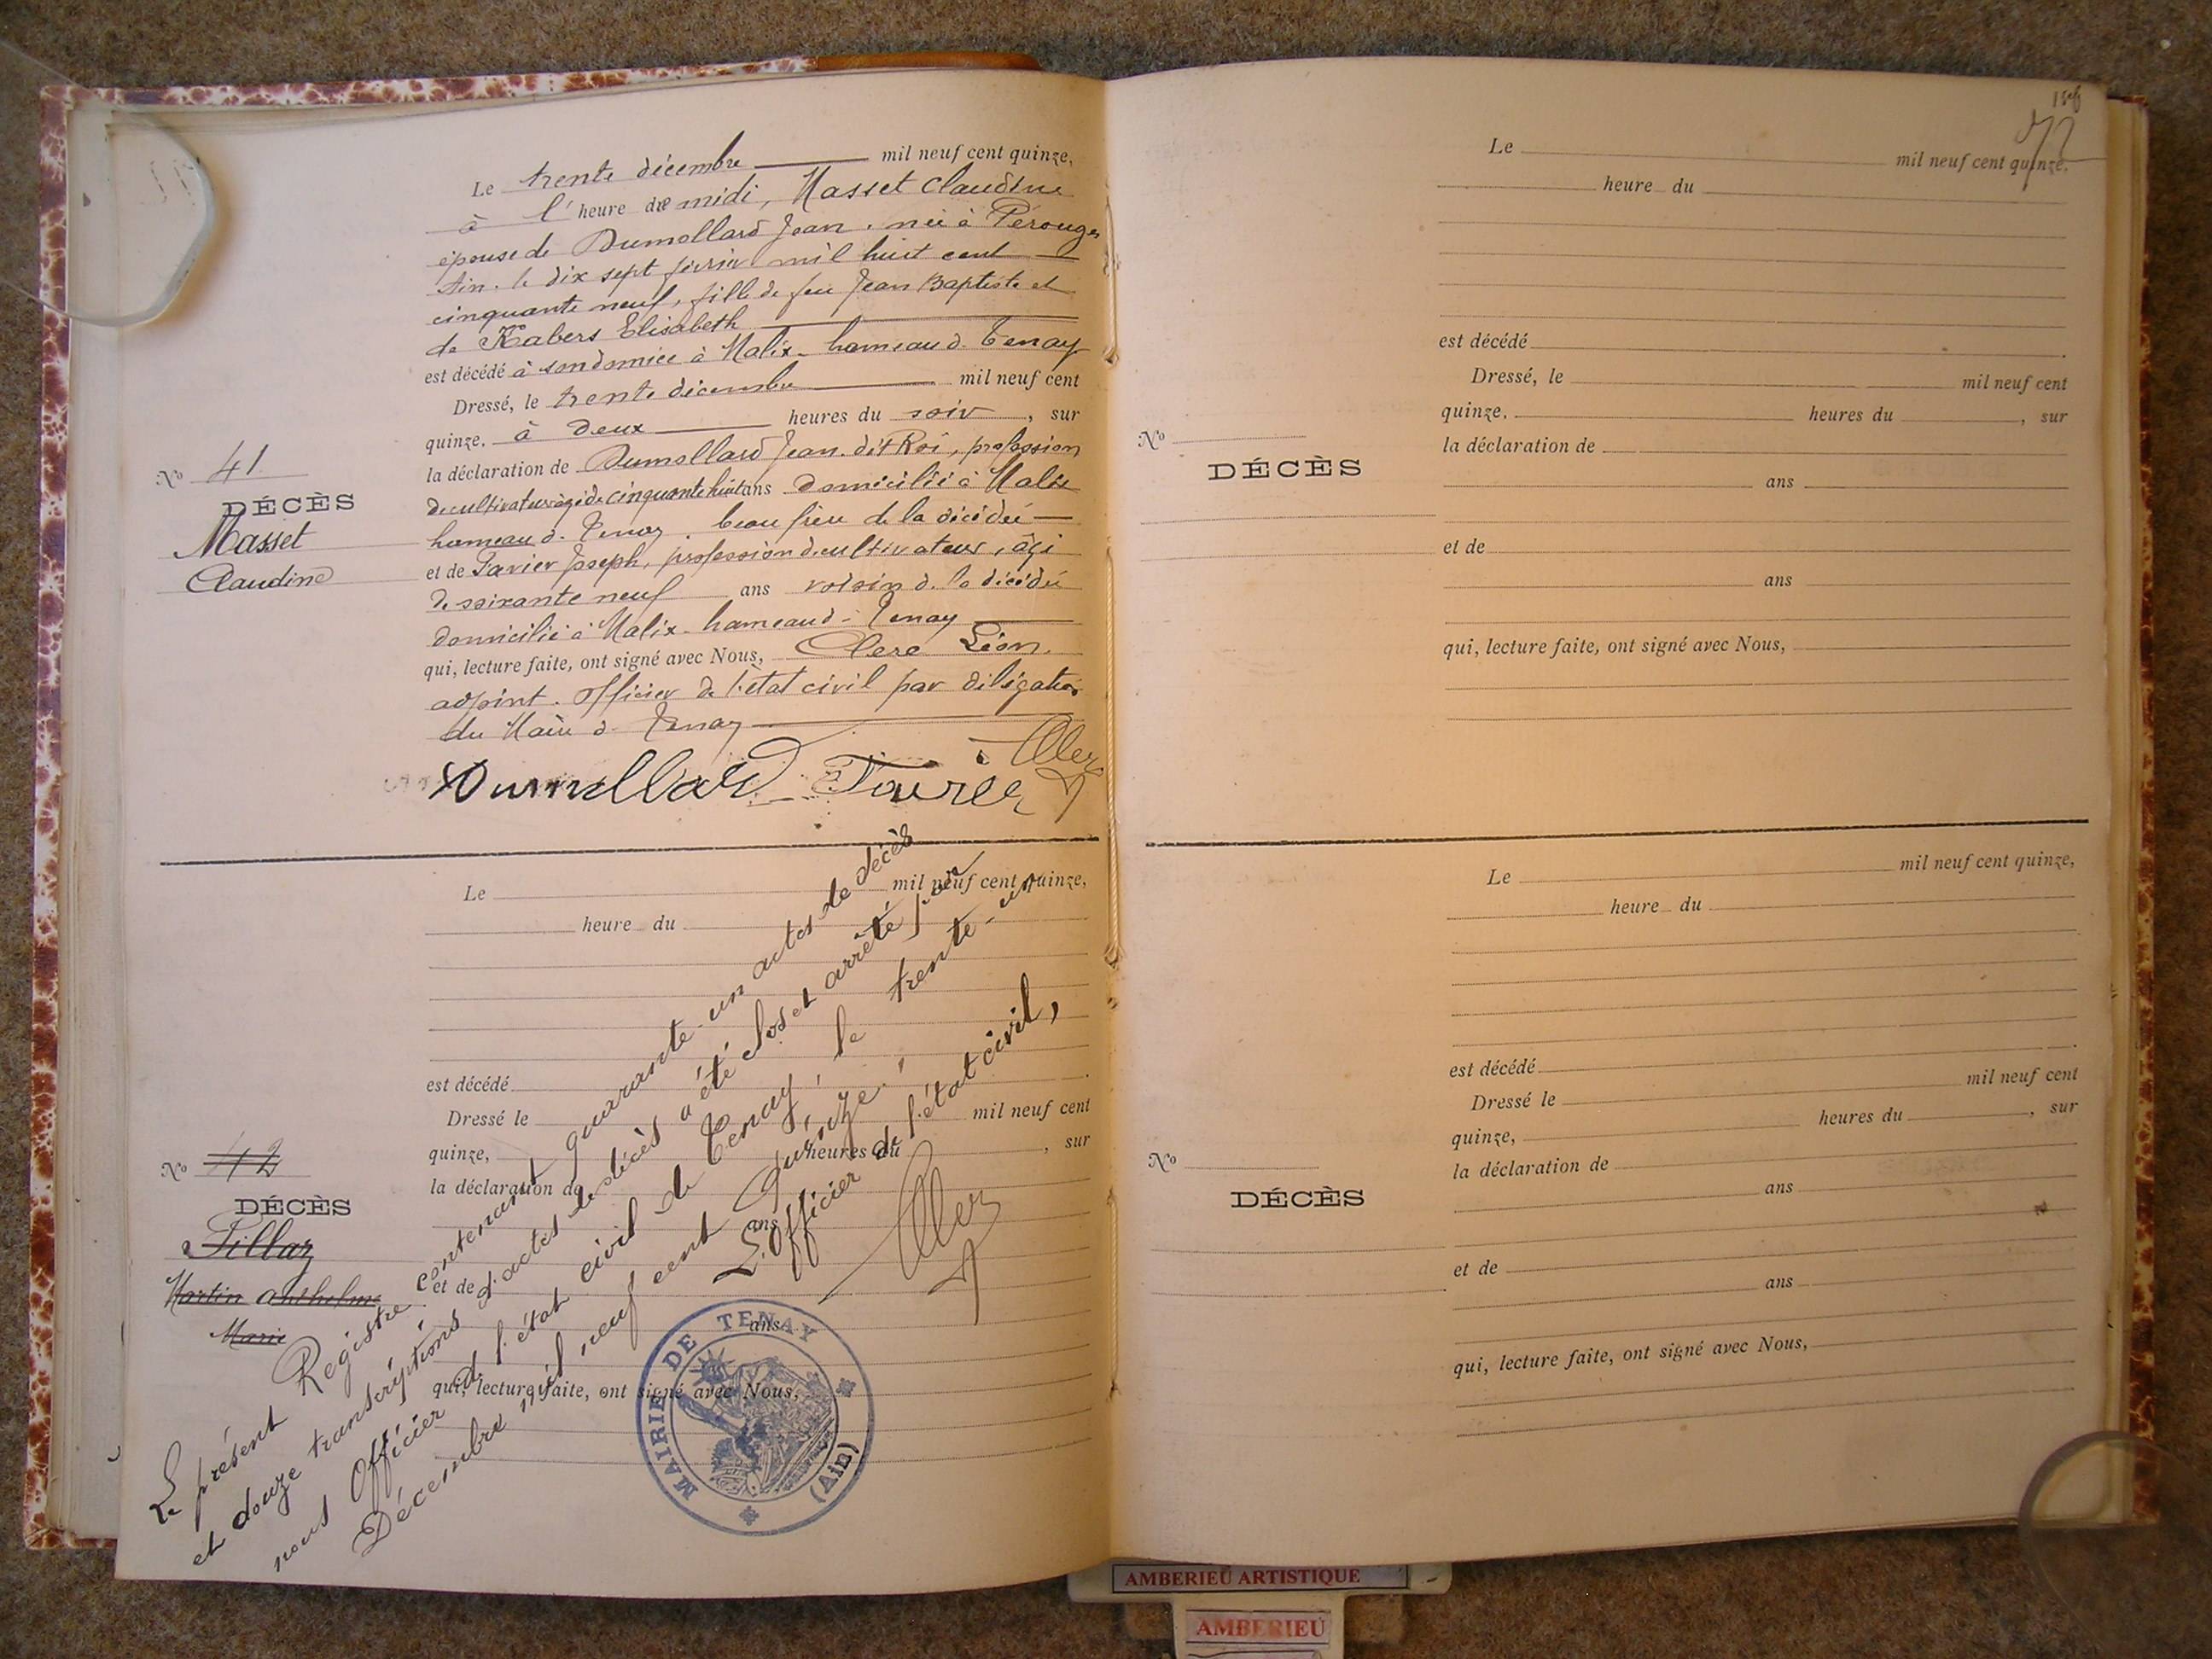 Le trente décembre mil neuf cent quinze,
à l'heure de midi, Masset Claudine
épouse de Dumollard Jean, née à Pérouges
Ain, le dix sept février mil huit cent
cinquante neuf, fille de feu Jean Baptiste et
de Elisabeth
est décédé à son domicile à Malix hameau de Tenay
Dressé, le trente décembre mil neuf cent
quinze, à deux heures du soir, sur
la déclaration de Dumollard Jean dit Roi, profession
de cultivateur âgé de cinquante huit ans domicilié à Malix
hameau de Tenay beau frère de la décédée
et de Favier Joseph, profession de cultivateur, âgé
de soixante neuf ans voisin de la décédée
domicilié à Malix hameau de Tenay
qui, lecture faite, ont signé avec Nous, Clerc Léon,
adjoint. officier de l'état civil par délégation
du Maire de Tenay
Dumollard Favier
No 41
DÉCÈS
Masset
Claudine
Le mil neuf cent quinze,
heure du
est décédé
Dressé le mil neuf cent
quinze, heures du , sur
la déclaration de
ans
et de
ans
qui, lecture faite, ont signé avec Nous,
No 42
DÉCÈS
Pillaz
Martin Anthelme
Marie
Le présent Registre contenant quarante-un actes de décès
et douze transcriptions d'actes de décès a été clos et arrêté par
nous Officier de l'état civil de Tenay, le trente-un
Décembre mil neuf cent Quinze.
L'Officier de l'état civil,
MAIRIE DE TENAY
(Ain)
72
Le mil neuf cent quinze,
heure du
est décédé
Dressé, le mil neuf cent
quinze, heures du , sur
la déclaration de
ans
et de
ans
qui, lecture faite, ont signé avec Nous,
No
DÉCÈS
Le mil neuf cent quinze,
heure du
est décédé
Dressé le mil neuf cent
quinze, heures du , sur
la déclaration de
ans
et de
ans
qui, lecture faite, ont signé avec Nous,
No
DÉCÈS
AMBERIEU ARTISTIQUE
AMBERIEU